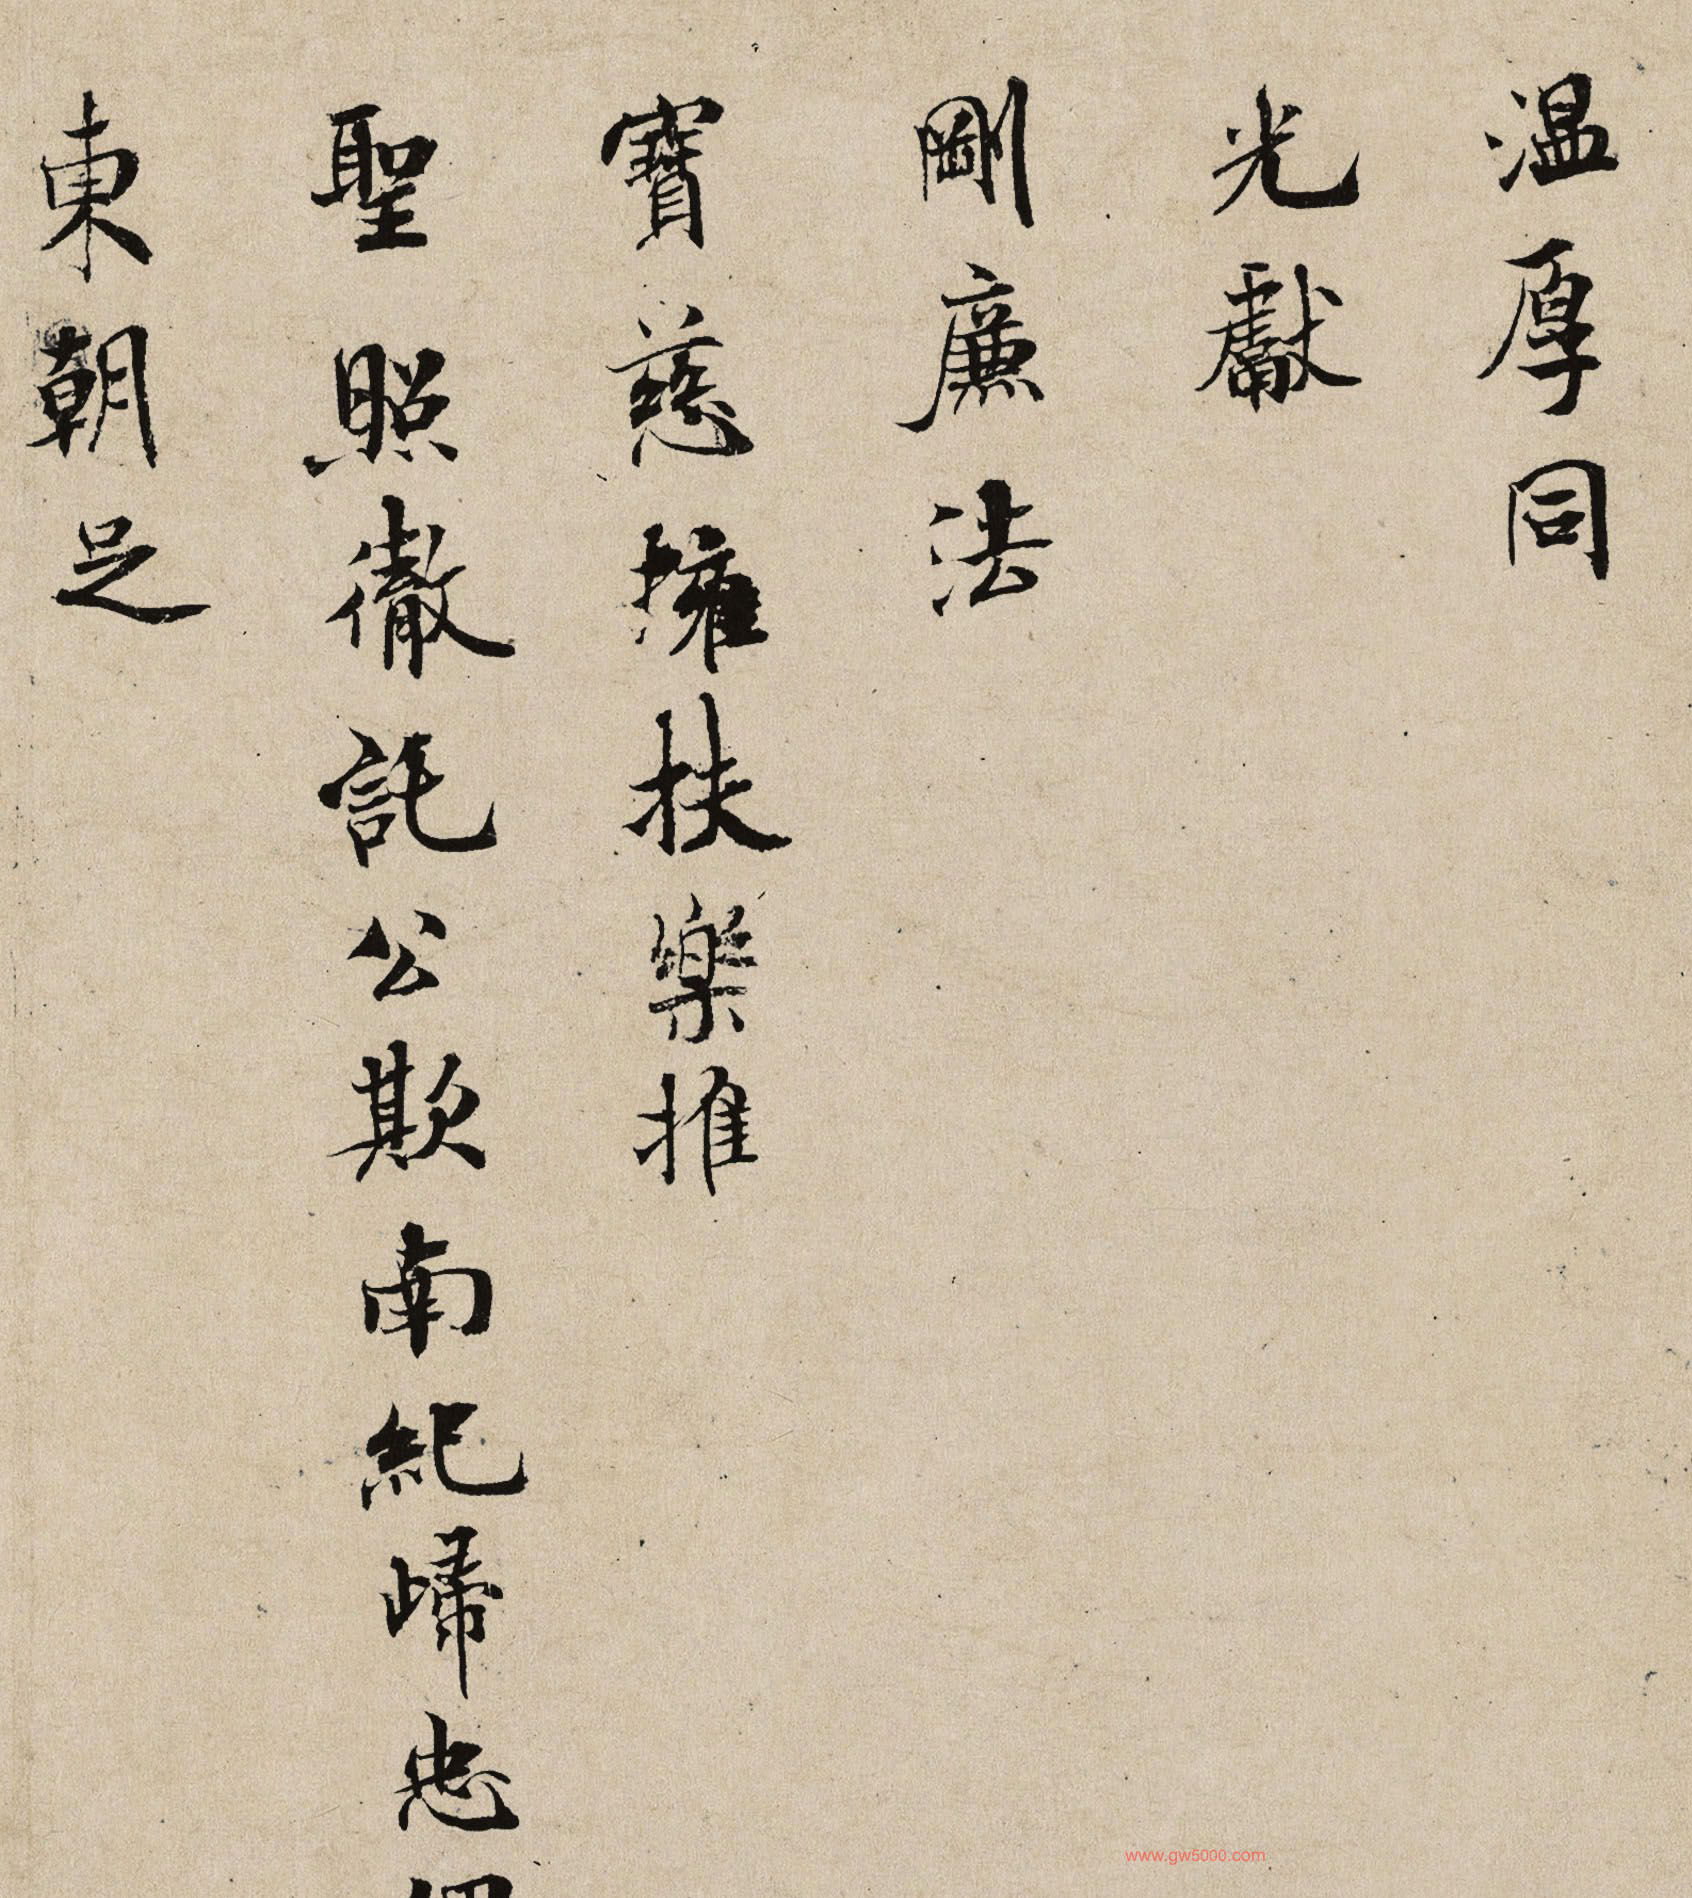 温厚同
光獻
剛廉法
寶慈擁扶樂推
聖照徹託公欺南紀歸忠
東朝足
www.gw5000.com